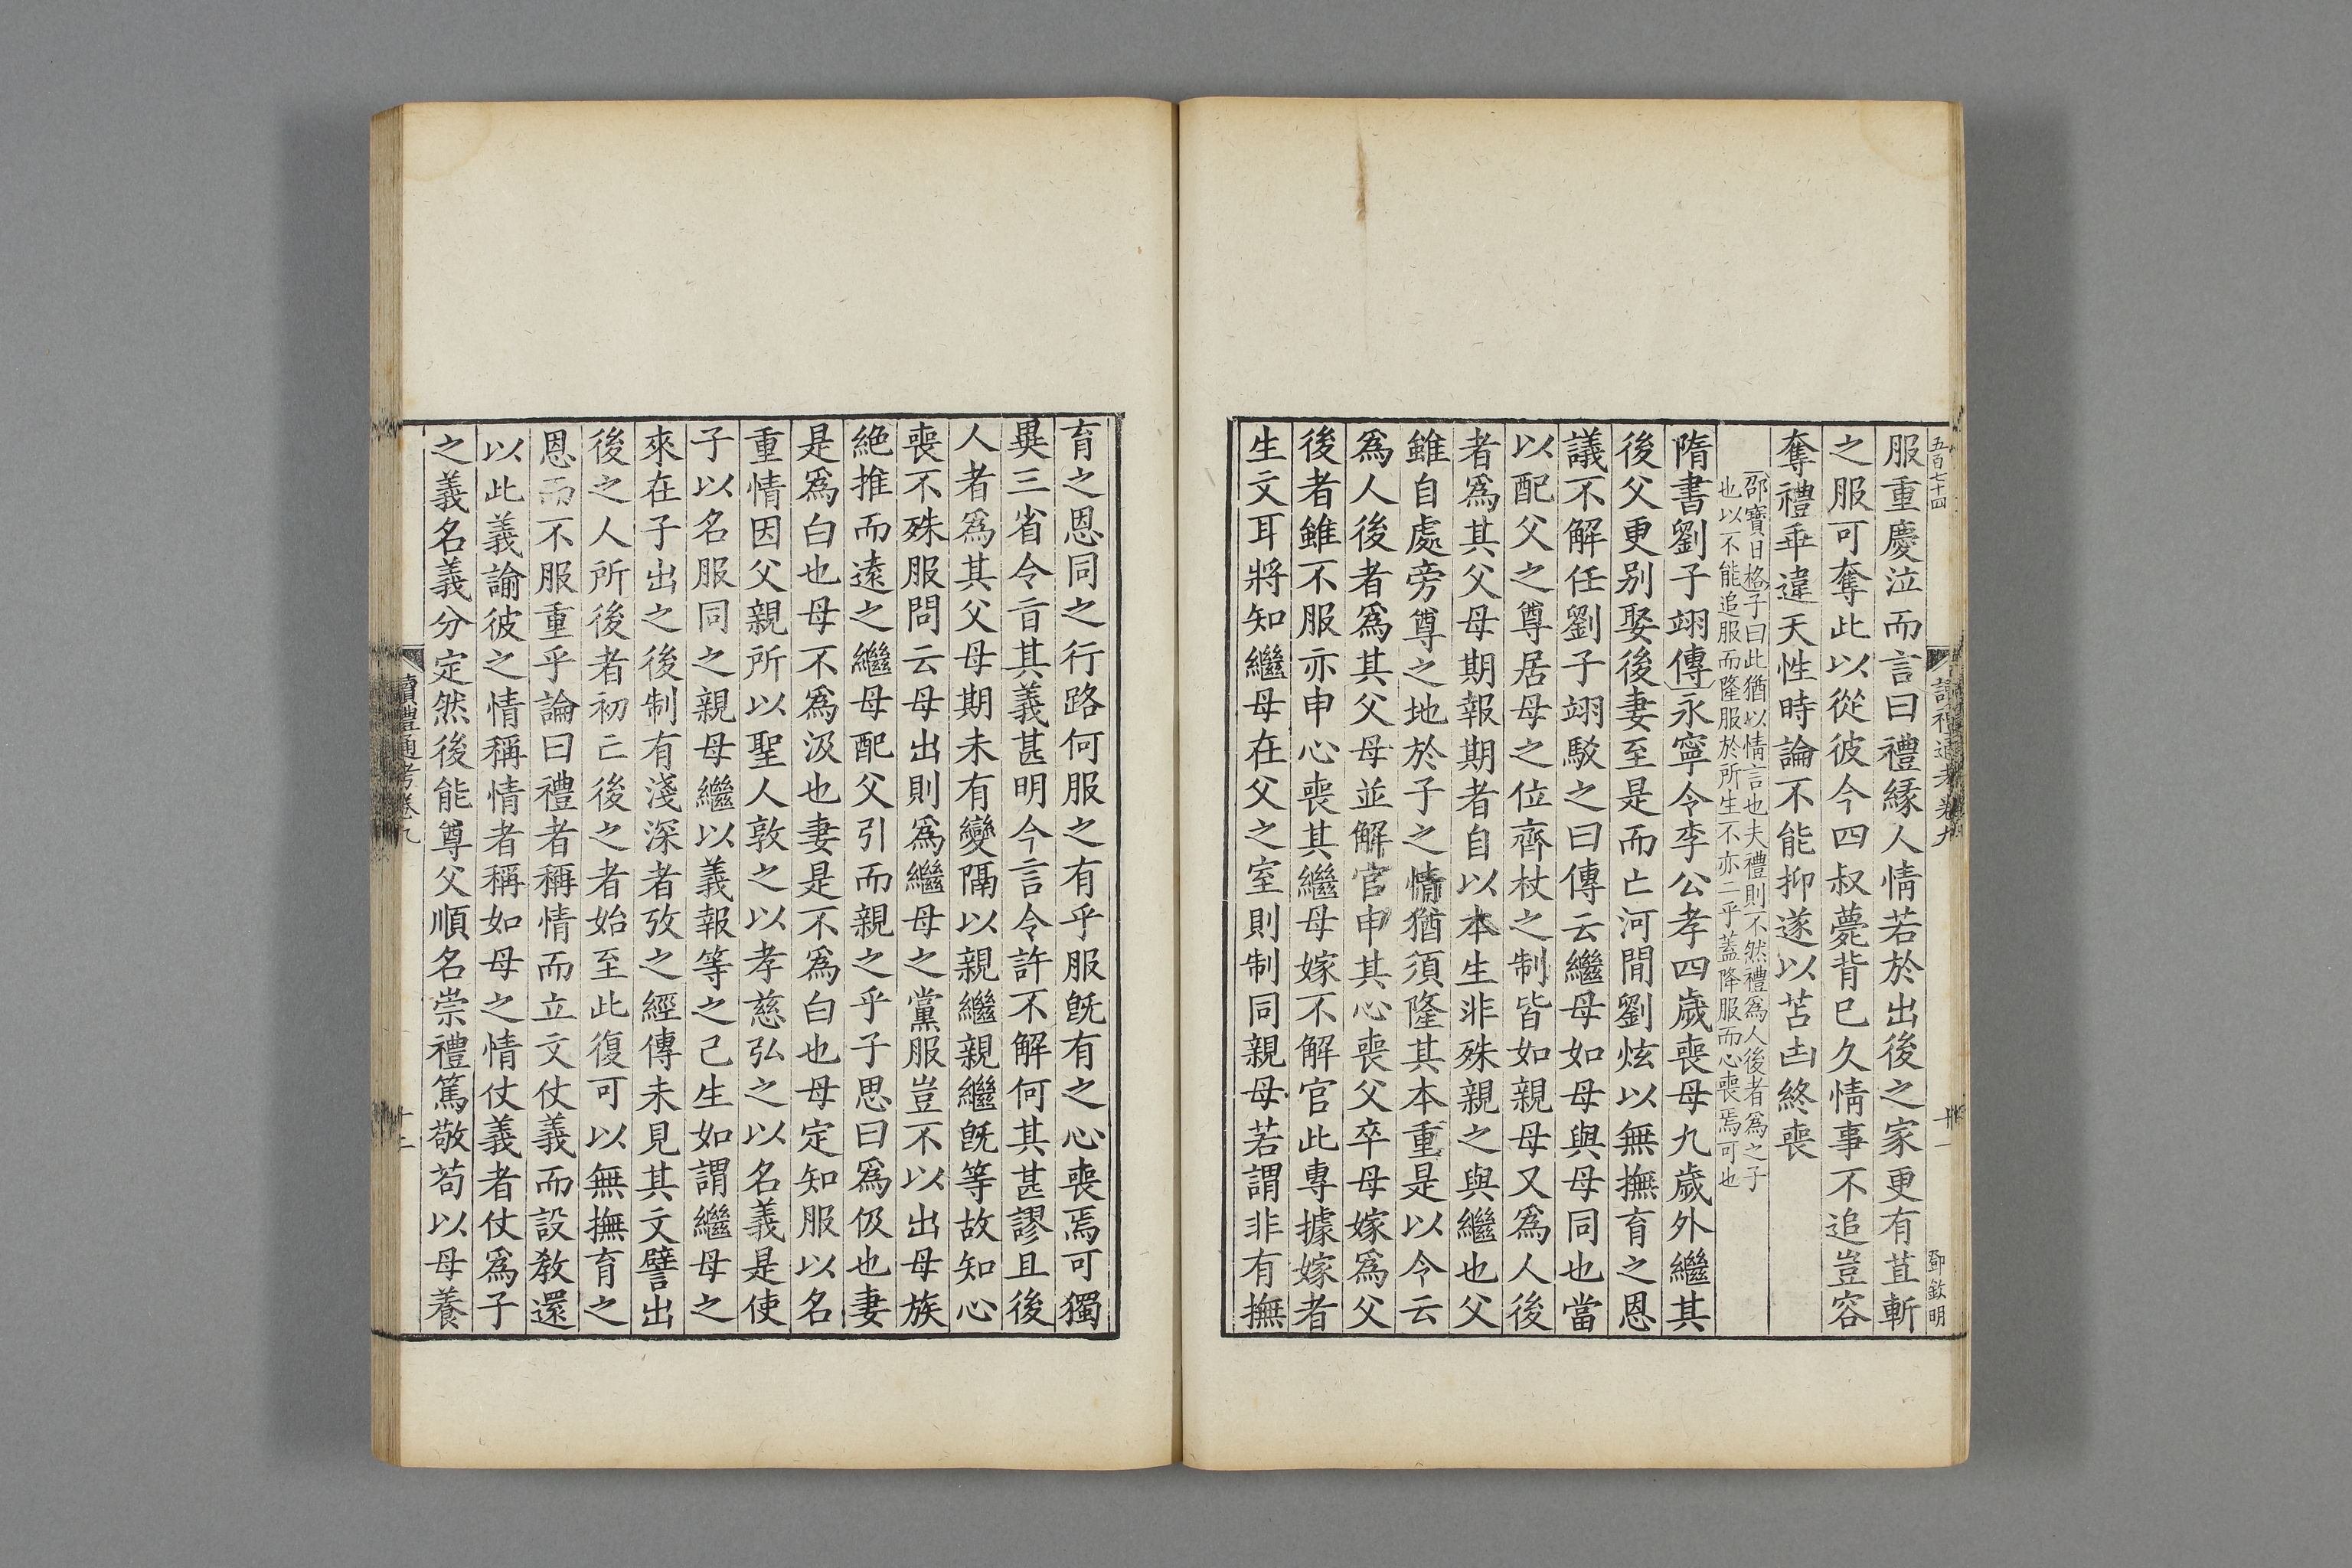 五百七十四
讀禮通考卷九
鄧欽明
服重慶泣而言曰禮緣人情若於出後之家更有苴斬
之服可奪此以從彼今四叔薨背巳久情事不追豈容
奪禮乖違天性時論不能抑遂以苫凷終喪
邵寶曰格子曰此猶以情言也夫禮則不然禮爲人後者爲之子
也以不能追服而隆服於所生不亦二乎蓋降服而心喪焉可也
隋書劉子翊傳永寧令李公孝四歲喪母九歲外繼其
後父更别娶後妻至是而亡河閒劉炫以無撫育之恩
議不解任劉子翊駮之曰傳云繼母如母與母同也當
以配父之尊居母之位齊杖之制皆如親母又爲人後
者爲其父母期報期者自以本生非殊親之與繼也父
雖自處旁尊之地於子之情猶須隆其本重是以令云
爲人後者爲其父母並解官申其心喪父卒母嫁爲父
後者雖不服亦申心喪其繼母嫁不解官此專據嫁者
生文耳將知繼母在父之室則制同親母若謂非有撫
育之恩同之行路何服之有乎服旣有之心喪焉可獨
異三省令旨其義甚明今言令許不解何其甚謬且後
人者爲其父母期未有變隔以親繼親繼旣等故知心
喪不殊服問云母出則爲繼母之黨服豈不以出母族
絶推而遠之繼母配父引而親之乎子思曰爲伋也妻
是爲白也母不爲汲也妻是不爲白也母定知服以名
重情因父親所以聖人敦之以孝慈弘之以名義是使
子以名服同之親母繼以義報等之己生如謂繼母之
來在子出之後制有淺深者攷之經傳未見其文譬出
後之人所後者初亡後之者始至此復可以無撫育之
恩而不服重乎論曰禮者稱情而立文仗義而設敎還
以此義諭彼之情稱情者稱如母之情仗義者仗爲子
之義名義分定然後能尊父順名崇禮篤敬苟以母養
讀禮通考卷九